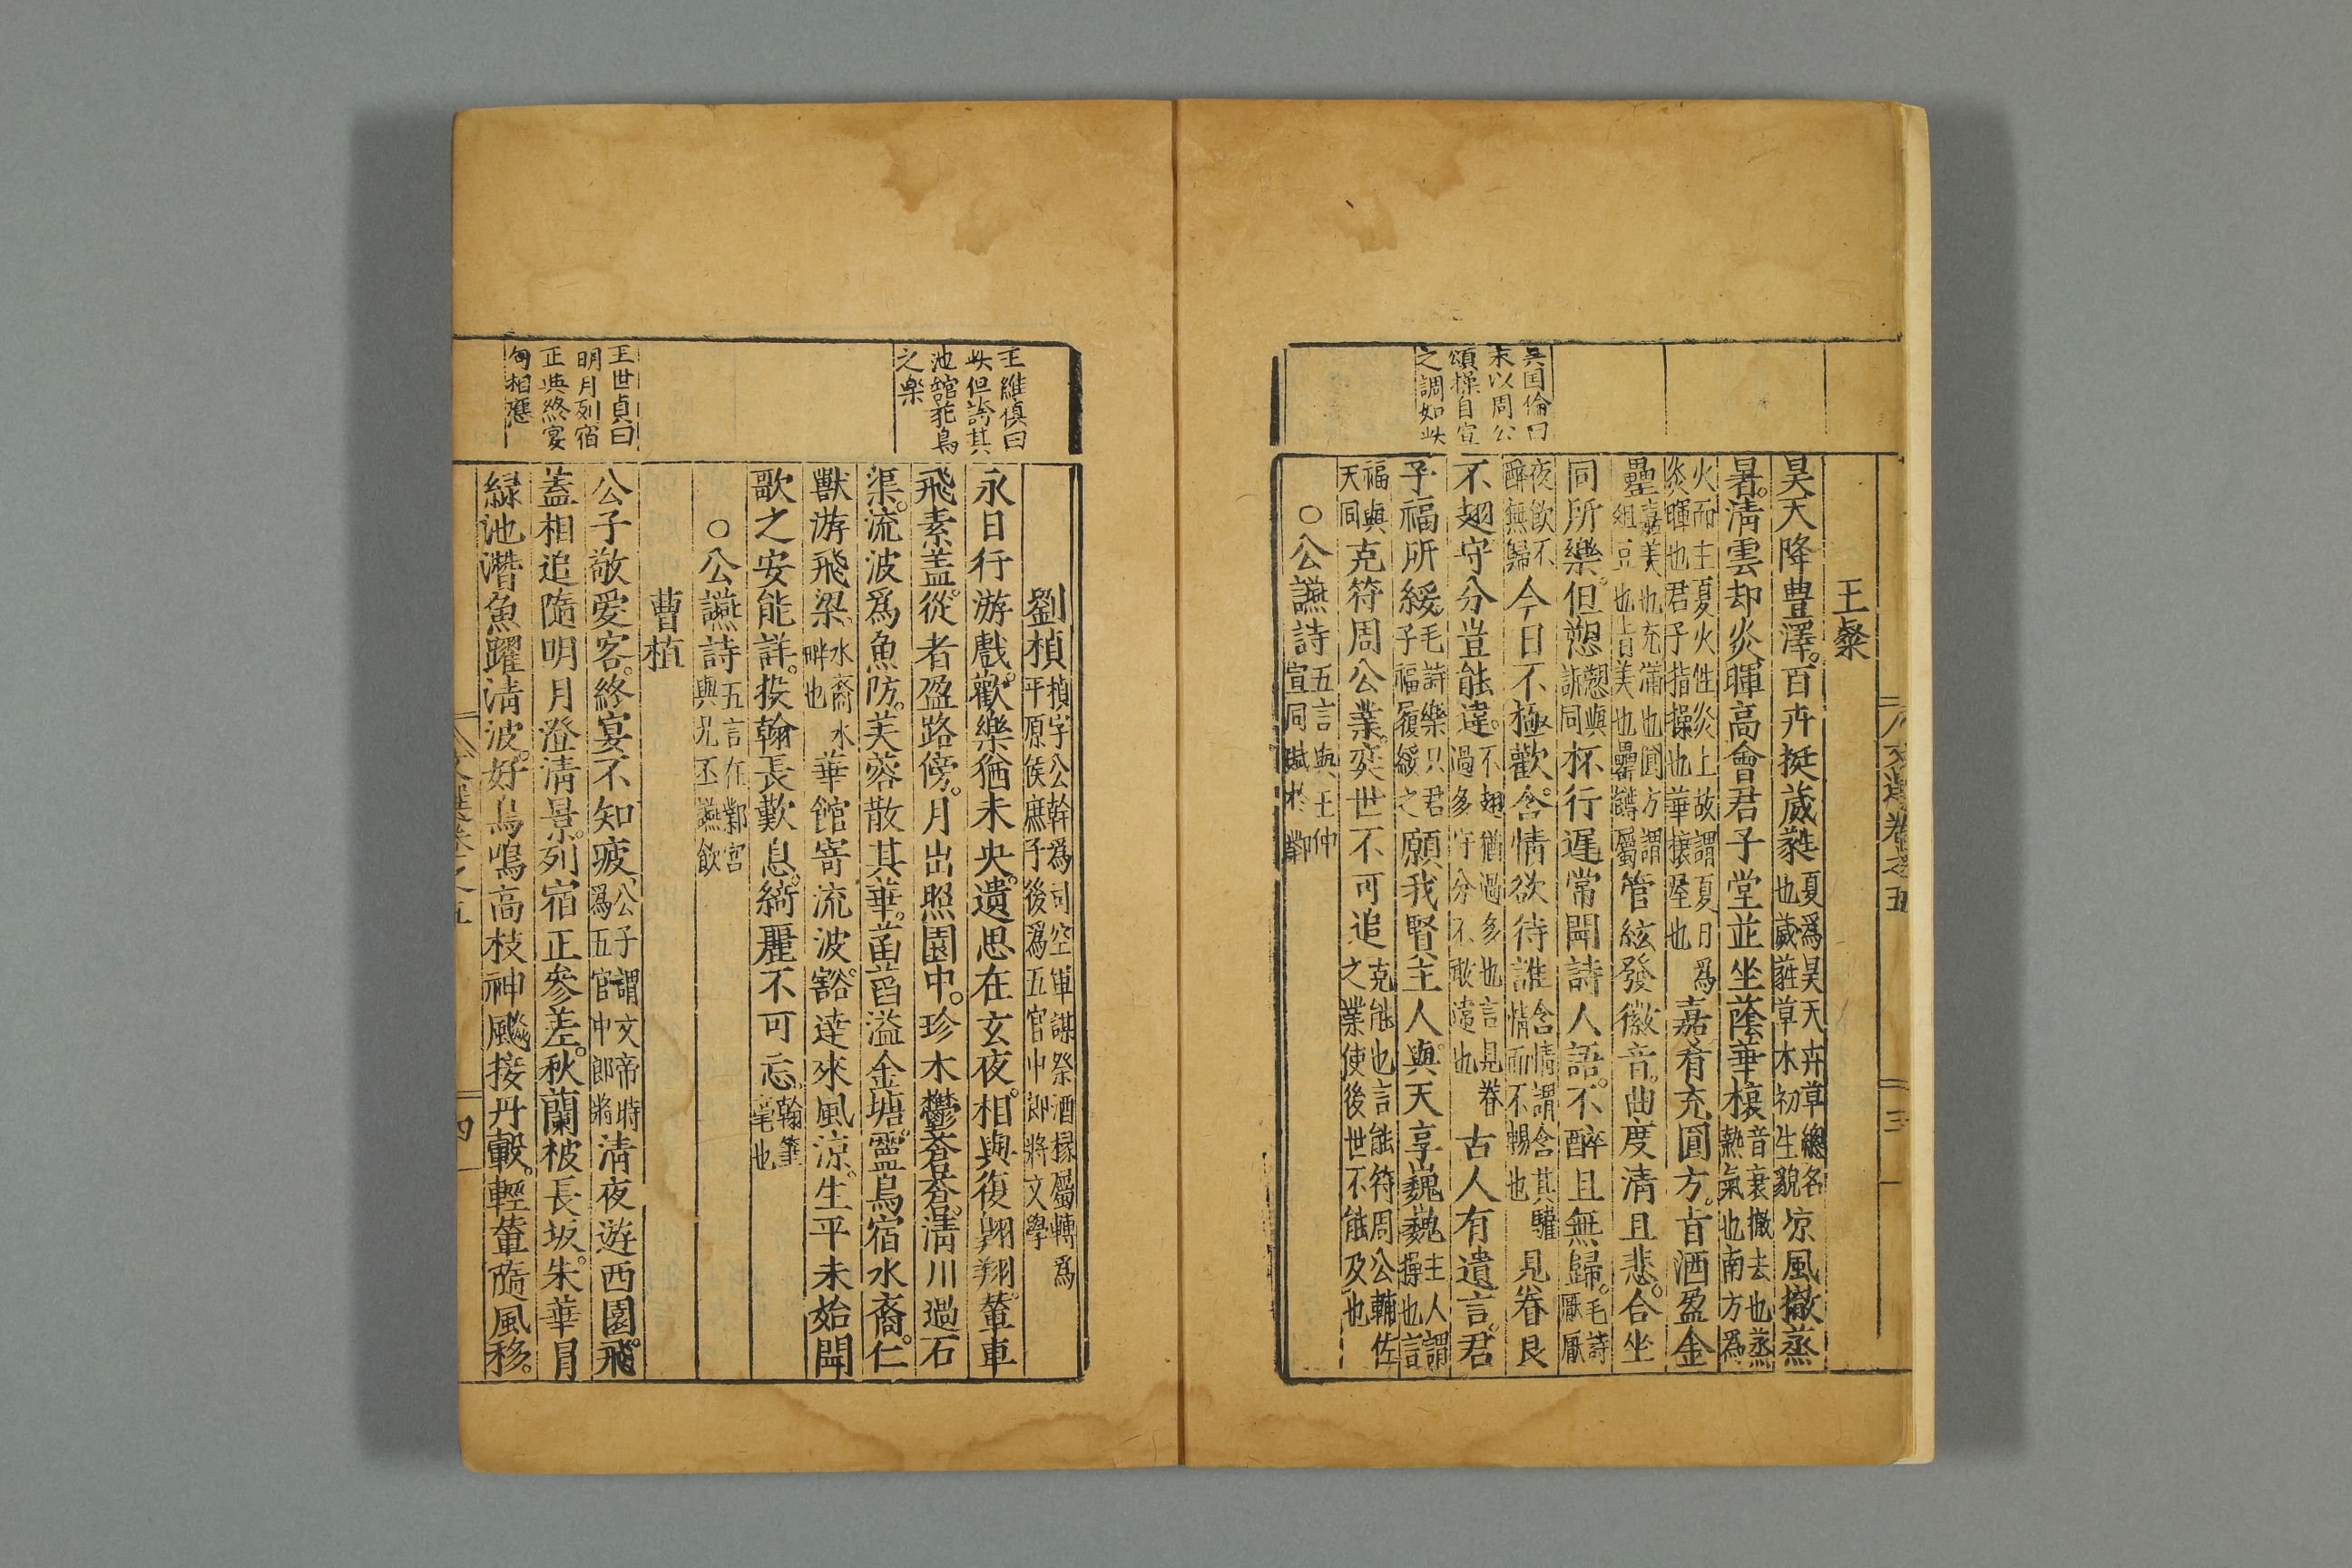 吳国倫曰
末以周公
頌操自宜
之調如此
王粲
昊天降豊澤。百卉挺葳蕤夏爲昊天卉草總名也葳蕤草木初生貌凉風撤蒸
暑。清雲却炎暉高會君子堂並坐蔭華榱音衰撤去也蒸熱氣也南方爲
火而主夏火性炎上故謂夏日爲炎暉也君子指操也華榱屋也嘉肴充圓方。旨酒盈金
罍嘉美也充滿也圓方謂俎豆也旨美也罍罇屬管絃發徽音。曲度清且悲。合坐
同所樂。但愬愬與訴同杯行遲常聞詩人語。不醉且無歸。毛詩厭厭
夜飲不醉無歸今日不極歡。含情欲待誰含情謂含其驩情而不暢也見眷良
不翅守分豈能違。不翅猶過多也言見眷過多守分不敢違也古人有遺言。君
子福所綏毛詩樂只君子福履綏之願我賢主人。與天享巍巍主人謂操也言
福與天同克符周公業。奕世不可追克能也言能符周公輔佐之業使後世不能及也
○公讌詩五言與王仲宣同賦於鄴
文選卷之五
三
王維楨曰
此但誇其
池舘花鳥
之楽
王世貞曰
明月列宿
正與終宴
句相應
劉楨楨字公幹爲司空軍謀祭酒掾屬轉爲平原侯庶子後爲五官中郎將文學
永日行游戲。歡樂猶未央。遺思在玄夜。相與復翱翔。輦車
飛素盖。從者盈路傍。月出照園中。珍木鬱蒼蒼。清川過石
渠。流波爲魚防。芙蓉散其華。菡萏溢金塘。靈鳥宿水裔。仁
獸游飛梁、水裔水畔也華館寄流波。豁達來風涼。生平未始聞
歌之安能詳。投翰長歎息。綺麗不可忘。翰筆毫也
○公讌詩五言在鄴宮與兄丕讌飲
曹植
公子敬愛客。終宴不知疲、公子謂文帝時爲五官中郎將清夜遊西園。飛
蓋相追隨明月澄清景。列宿正參差。秋蘭被長坂。朱華冒
緑池潛魚躍清波。好鳥鳴高枝神飈接丹轂。輕輦隨風移。
文選卷之五
四